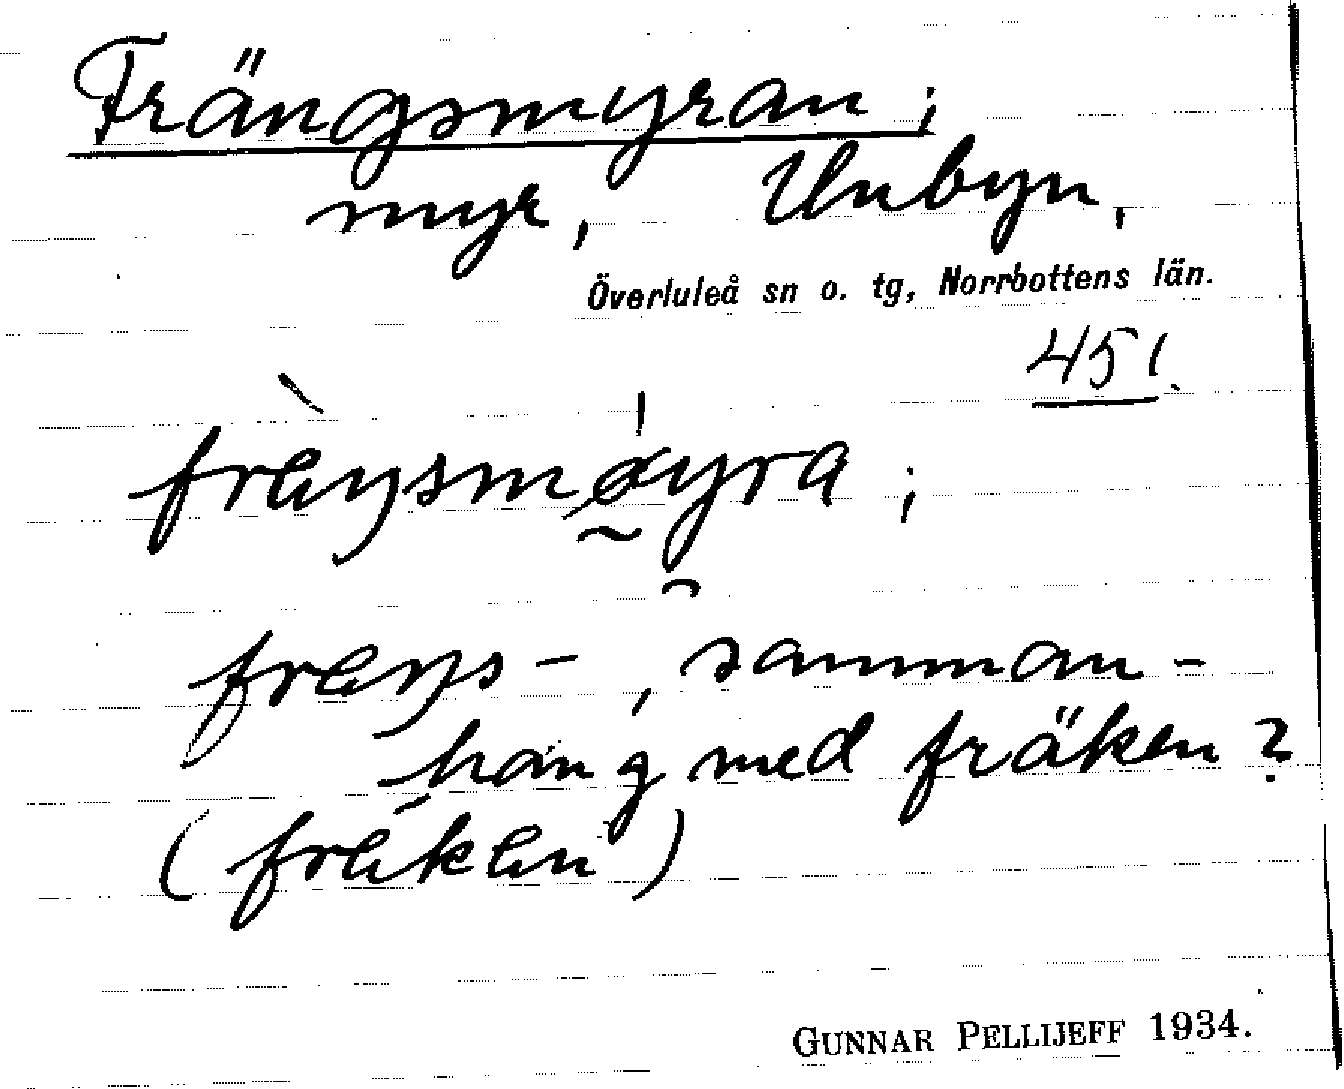 Frängsmyran;
myr, Unbyn,
Överluleå sn o. tg, Norrbottens län.
451.
fræŋsmøyra;
fræŋs-, samman-
häng med fräken?
(frækæn)
GUNNAR PELLIJEFF 1934.